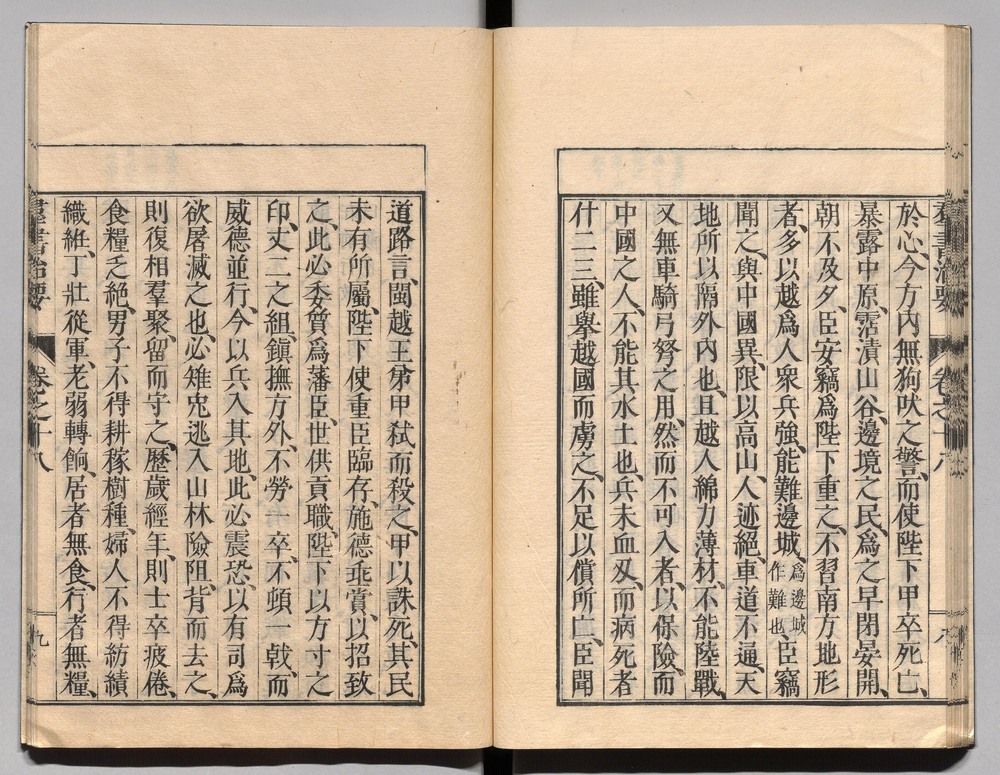 於心、今方內無狗吠之警、而使陛下甲卒死亡、
暴露中原、霑漬山谷、邊境之民爲之早閉晏開、
朝不及夕、臣安竊爲陛下重之、不習南方地形
者、多以越爲人衆兵強、能難邊城、爲邊城作難也、臣竊
聞之、與中國異、限以高山、人迹絕、車道不通、天
地所以隔外內也、且越人綿力薄材、不能陸戰、
又無車騎弓弩之用、然而不可入者、以保險、而
中國之人、不能其水土也、兵未血刃、而病死者
什二三、雖舉越國而虜之、不足以償所亡、臣聞
羣書治要 卷之十八 八
道路言、閩越王弟甲弒而殺之、甲以誅死、其民
未有所屬、陛下使重臣臨存、施德垂賞、以招致
之、此必委質爲藩臣、世供貢職、陛下以方寸之
印、丈二之組、鎮撫方外、不勞一卒、不頓一戟、而
威德並行、今以兵入其地、此必震恐、以有司爲
欲屠滅之也、必雉兔逃入山林險阻、背而去之、
則復相羣聚、留而守之、歷歲經年、則士卒疲倦、
食糧乏絕、男子不得耕稼樹種、婦人不得紡績
織維、丁壯從軍、老弱轉餉、居者無食、行者無糧、
羣書治要 卷之十八 九